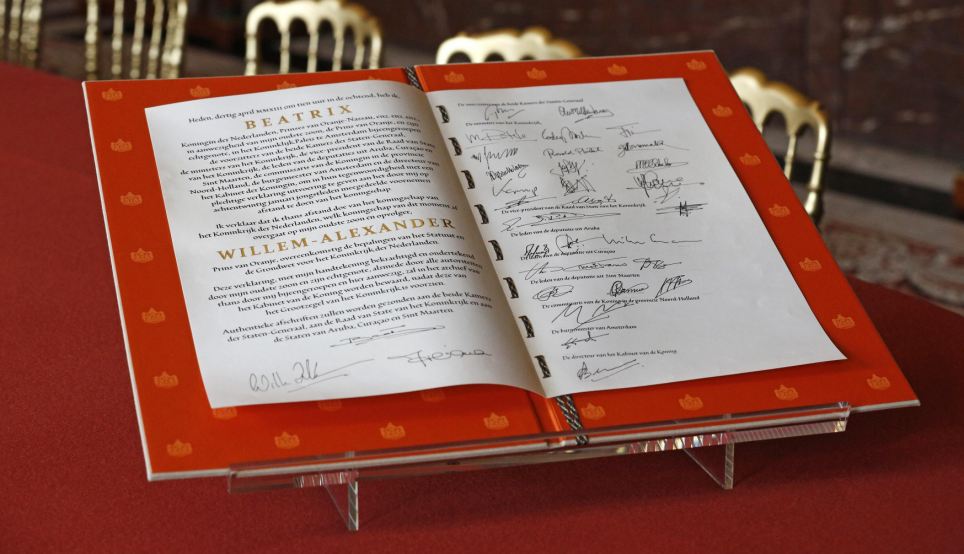 Heden, dertig april MMXIII om tien uur in de ochtend, heb ik,
BEATRIX
Koningin der Nederlanden, Prinses van Oranje-Nassau, enz. enz. enz.,
in aanwezigheid van mijn oudste zoon, de Prins van Oranje, en zijn
echtgenote, in het Koninklijk Paleis te Amsterdam bijeengeroepen
de voorzitters van de beide Kamers der Staten-Generaal,
de ministers van het Koninkrijk, de vice-president van de Raad van State
van het Koninkrijk, de leden van de deputaties uit Aruba, Curaçao en
Sint Maarten, de commissaris van de Koningin in de provincie
Noord-Holland, de burgemeester van Amsterdam en de directeur van
het Kabinet der Koningin, om in hun tegenwoordigheid met een
plechtige verklaring uitvoering te geven aan het door mij op
achtentwintig januari jongstleden meegedeelde voornemen
afstand te doen van het koningschap.
Ik verklaar dat ik thans afstand doe van het koningschap van
het Koninkrijk der Nederlanden, welk koningschap van dit moment af
overgaat op mijn oudste zoon en opvolger,
WILLEM-ALEXANDER
Prins van Oranje, overeenkomstig de bepalingen van het Statuut en
de Grondwet voor het Koninkrijk der Nederlanden.
Deze verklaring, met mijn handtekening bekrachtigd en ondertekend
door mijn oudste zoon en zijn echtgenote, alsmede door alle autoriteiten
thans door mij bijeengeroepen en hier aanwezig, zal in het archief van
het Kabinet van de Koning worden bewaard, nadat deze van
het Grootzegel van het Koninkrijk is voorzien.
Authentieke afschriften zullen worden gezonden aan de beide Kamers
der Staten-Generaal, aan de Raad van State van het Koninkrijk en aan
de Staten van Aruba, Curaçao en Sint Maarten.
De voorzitters van de beide Kamers der Staten-Generaal
De ministers van het Koninkrijk,
De vice-president van de Raad van State van het Koninkrijk
De leden van de deputatie uit Aruba
De leden van de deputatie uit Curaçao
De leden van de deputatie uit Sint Maarten
De commissaris van de Koning in de provincie Noord-Holland
De burgemeester van Amsterdam
De directeur van het Kabinet van de Koning